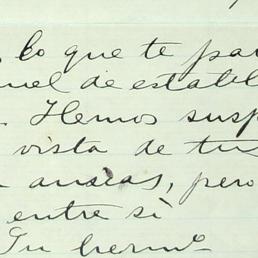 lo que te par
uel de establ
. Hemos susp
vista de tus
ansias, pero
entre sí
Tu herm°